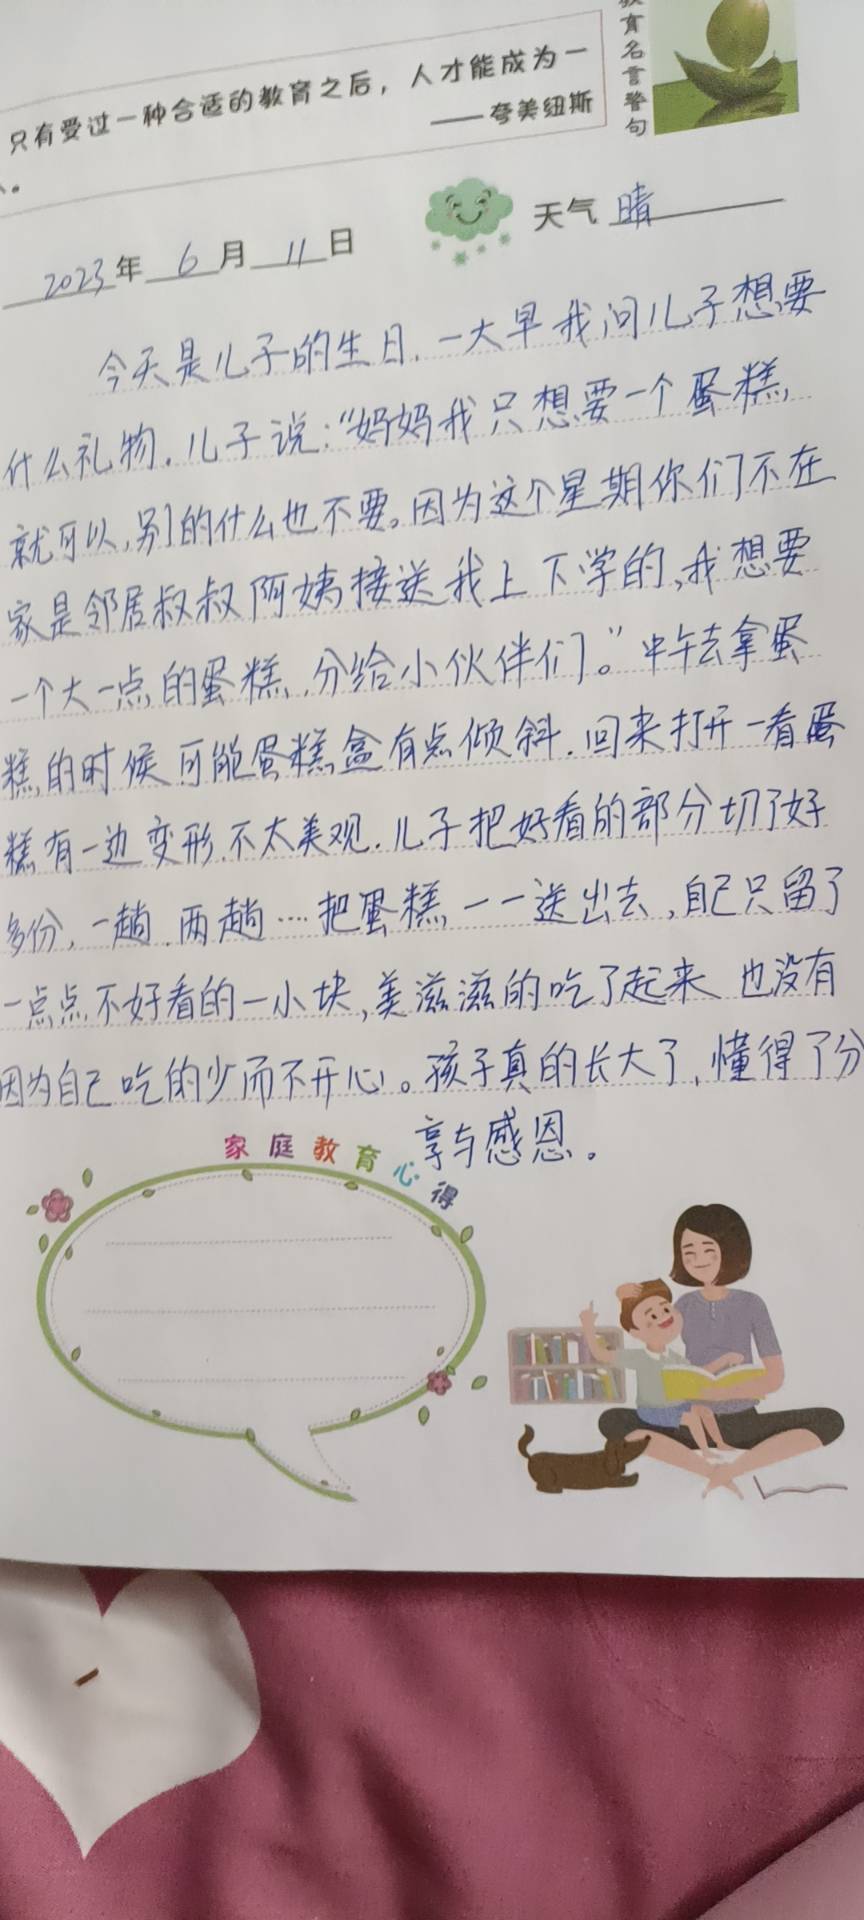 只有受过一种合适的教育之后，人才能成为一
——夸美纽斯
教育名言警句
2023年 6 月 11 日
天气 晴
今天是儿子的生日，一大早我问儿子想要
什么礼物．儿子说：“妈妈我只想要一个蛋糕，
就可以，别的什么也不要。因为这个星期你们不在
家是邻居叔叔阿姨接送我上下学的，我想要
一个大一点的蛋糕，分给小伙伴们。”中午去拿蛋
糕的时候可能蛋糕盒有点倾斜．回来打开一看蛋
糕有一边变形．不太美观．儿子把好看的部分切了好
多份，一趟．两趟…把蛋糕一一送出去，自己只留了
一点点不好看的一小块，美滋滋的吃了起来 也没有
因为自己吃的少而不开心。孩子真的长大了，懂得了分
享与感恩。
家庭教育心得